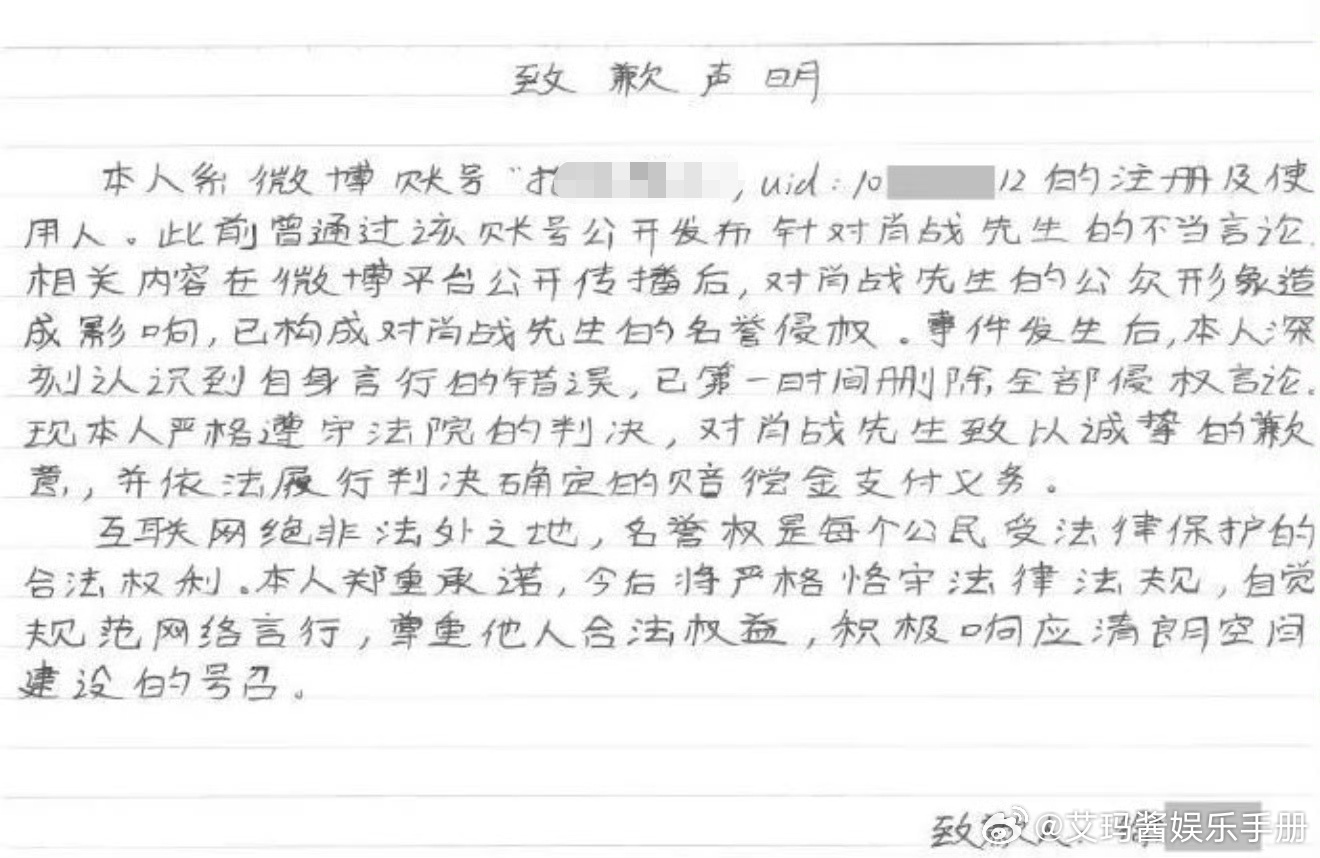 致歉声明
本人系微博账号“ , uid:10 12的注册及使
用人。此前曾通过该账号公开发布针对肖战先生的不当言论.
相关内容在微博平台公开传播后,对肖战先生的公众形象造
成影响,已构成对肖战先生的名誉侵权。事件发生后,本人深
刻认识到自身言行的错误,已第一时间删除全部侵权言论.
现本人严格遵守法院的判决,对肖战先生致以诚挚的歉
意,并依法履行判决确定的赔偿金支付义务。
互联网绝非法外之地,名誉权是每个公民受法律保护的
合法权利。本人郑重承诺,今后将严格恪守法律法规,自觉
规范网络言行,尊重他人合法权益,积极响应清朗空间
建设的号召。
致歉人:
@艾玛酱娱乐手册